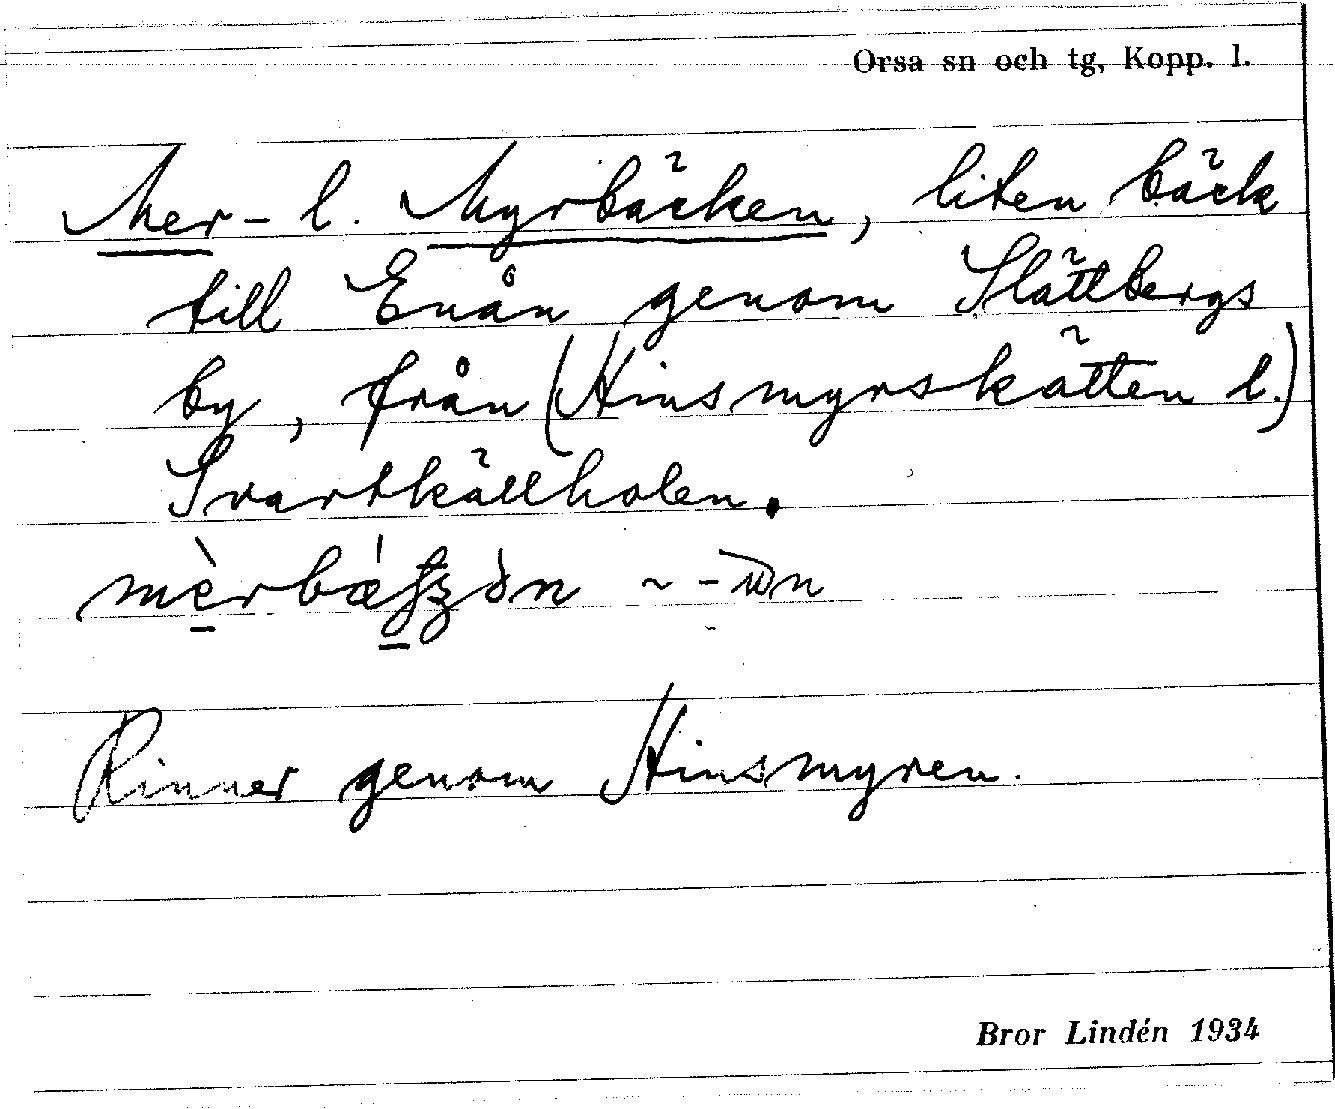 Orsa sn och tg, Kopp. l.
Mer- l. Myrbäcken, liten bäck
till Enån genom Slättbergs
by, från (Hinsmyrskätten l.)
Svartkällholen.
Rinner genom Hinsmyren.
Bror Lindén 1934